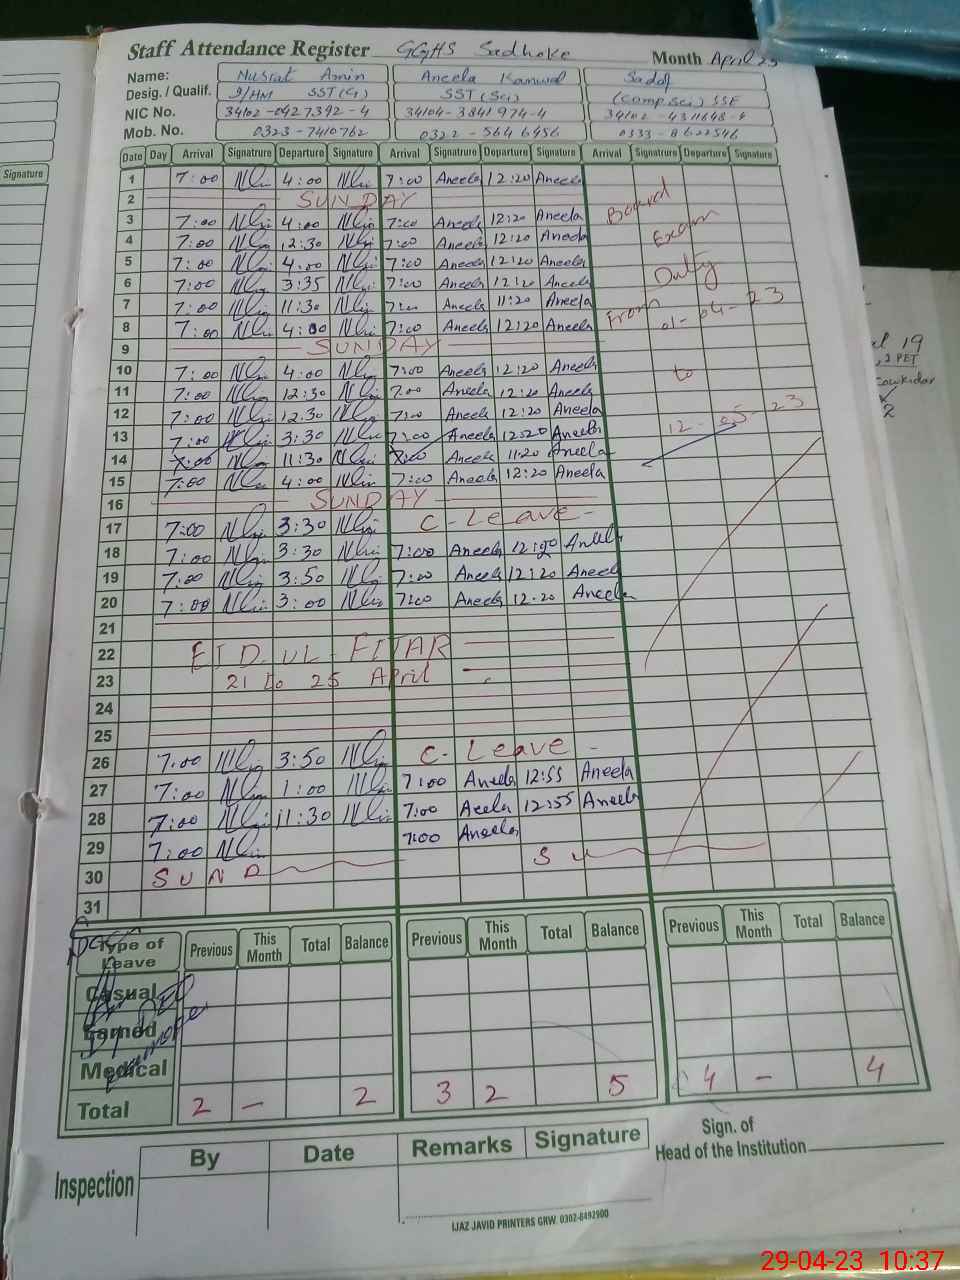 Signature
Staff Attendance Register GGHS Sadhoke Month April 23
Name: Nusrat Amin Aneela Kanwal Sadaf
Desig. / Qualif. I/HM SST(G) SST(Sci) (Comp.Sci) SSE
NIC No. 34102-0427392-4 34104-3841974-4 34102-4311648-4
Mob. No. 0323-7410762 0322-5646456 0333-8622546
Date Day Arrival Signatrure Departure Signature Arrival Signatrure Departure Signature Arrival Signatrure Departure Signature
1 7:00 4:00 7:00 Aneela 12:20 Aneela
2 SUNDAY Board
3 7:00 4:00 7:00 Aneela 12:20 Aneela
4 7:00 12:30 7:00 Aneela 12:20 Aneela Exam
5 7:00 4:00 7:00 Aneela 12:20 Aneela Duty
6 7:00 3:35 7:00 Aneela 12:20 Aneela
7 7:00 11:30 7:00 Aneela 11:20 Aneela From
8 7:00 4:00 7:00 Aneela 12:20 Aneela 01-04-23
9 SUNDAY
10 7:00 4:00 7:00 Aneela 12:20 Aneela to
11 7:00 12:30 7:00 Aneela 12:20 Aneela
12 7:00 12:30 7:00 Aneela 12:20 Aneela 12-05-23
13 7:00 3:30 7:00 Aneela 12:20 Aneela
14 7:00 11:30 7:00 Aneela 11:20 Aneela
15 7:00 4:00 7:00 Aneela 12:20 Aneela
16 SUNDAY
17 7:00 3:30 C-Leave-
18 7:00 3:30 7:00 Aneela 12:20 Aneela
19 7:00 3:50 7:00 Aneela 12:20 Aneela
20 7:00 3:00 7:00 Aneela 12:20 Aneela
21
22 EID-UL-FITAR
23 21 to 25 April
24
25
26 7:00 3:50 C-Leave-
27 7:00 1:00 7:00 Aneela 12:55 Aneela
28 7:00 11:30 7:00 Aeela 12:55 Aneela
29 7:00 7:00 Aneela
30 SUND SU
31
Type of Leave Previous This Month Total Balance Previous This Month Total Balance Previous This Month Total Balance
Casual
Earned
Medical
Total 2 - 2 3 2 5 4 - 4
Inspection By Date Remarks Signature
Sign. of
Head of the Institution
IJAZ JAVID PRINTERS GRW. 0302-6492900
19
2 PET
Cowkidar
2
29-04-23 10:37